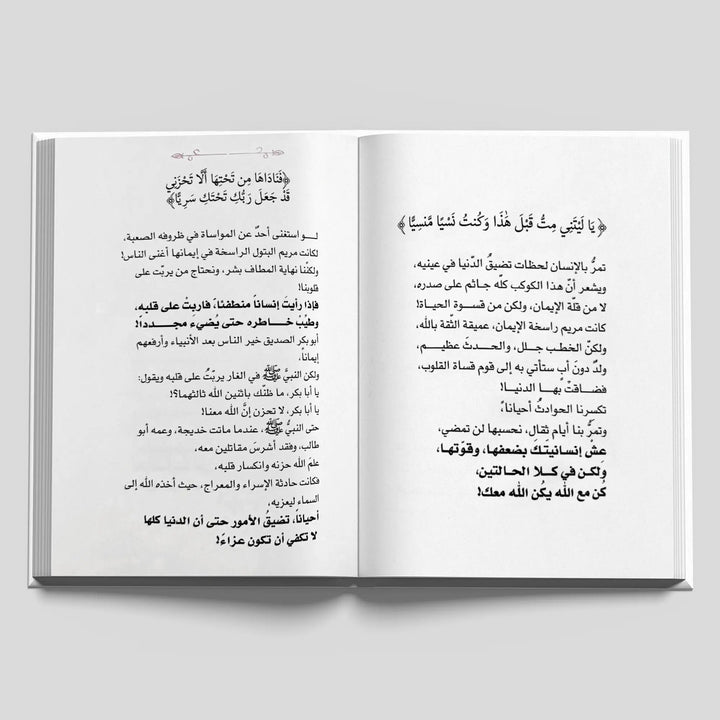 ﴿ يَا لَيْتَنِي مِتُّ قَبْلَ هَٰذَا وَكُنتُ نَسْيًا مَّنسِيًّا ﴾
تمرُّ بالإنسان لحظات تضيقُ الدّنيا في عينيه،
ويشعر أنّ هذا الكوكب كلّه جاثم على صدره،
لا من قلّة الإيمان، ولكن من قسوة الحياة!
كانت مريم راسخة الإيمان، عميقة الثّقة بالله،
ولكنّ الخطب جلل، والحدث عظيم،
ولدٌ دونَ أبٍ ستأتي به إلى قوم قساة القلوب،
فضاقتْ بها الدنيا!
تكسرنا الحوادثُ أحياناً،
وتمرُّ بنا أيام ثقال، نحسبها لن تمضي،
عِشْ إنسانيتَكَ بضعفها، وقوّتها،
ولكن في كلا الحالتين،
كُن مع الله يكُن الله معك!
﴿فَنَادَاهَا مِن تَحْتِهَا أَلَّا تَحْزَنِي
قَدْ جَعَلَ رَبُّكِ تَحْتَكِ سَرِيًّا﴾
لو استغنى أحدٌ عن المواساة في ظروفه الصعبة،
لكانت مريم البتول الراسخة في إيمانها أغنى الناس!
ولكنّنا نهاية المطاف بشر، ونحتاج من يربّت على
قلوبنا!
فإذا رأيتَ إنساناً منطفئاً، فاربِتْ على قلبه،
وطيّبْ خاطره حتى يُضيء مجدداً!
أبو بكر الصديق خير الناس بعد الأنبياء وأرفعهم
إيماناً،
ولكن النبيَّ ﷺ في الغار يربّتُ على قلبه ويقول:
يا أبا بكر، ما ظنّك باثنين الله ثالثهما؟!
يا أبا بكر، لا تحزن إنَّ الله معنا!
حتى النبيُّ ﷺ، عندما ماتت خديجة، وعمه أبو
طالب، وفقد أشرسَ مقاتلين معه،
علمَ الله حزنه وانكسار قلبه،
فكانت حادثة الإسراء والمعراج، حيث أخذه الله إلى
السماء ليعزيه،
أحياناً، تضيقُ الأمور حتى أن الدنيا كلها
لا تكفي أن تكون عزاءً!